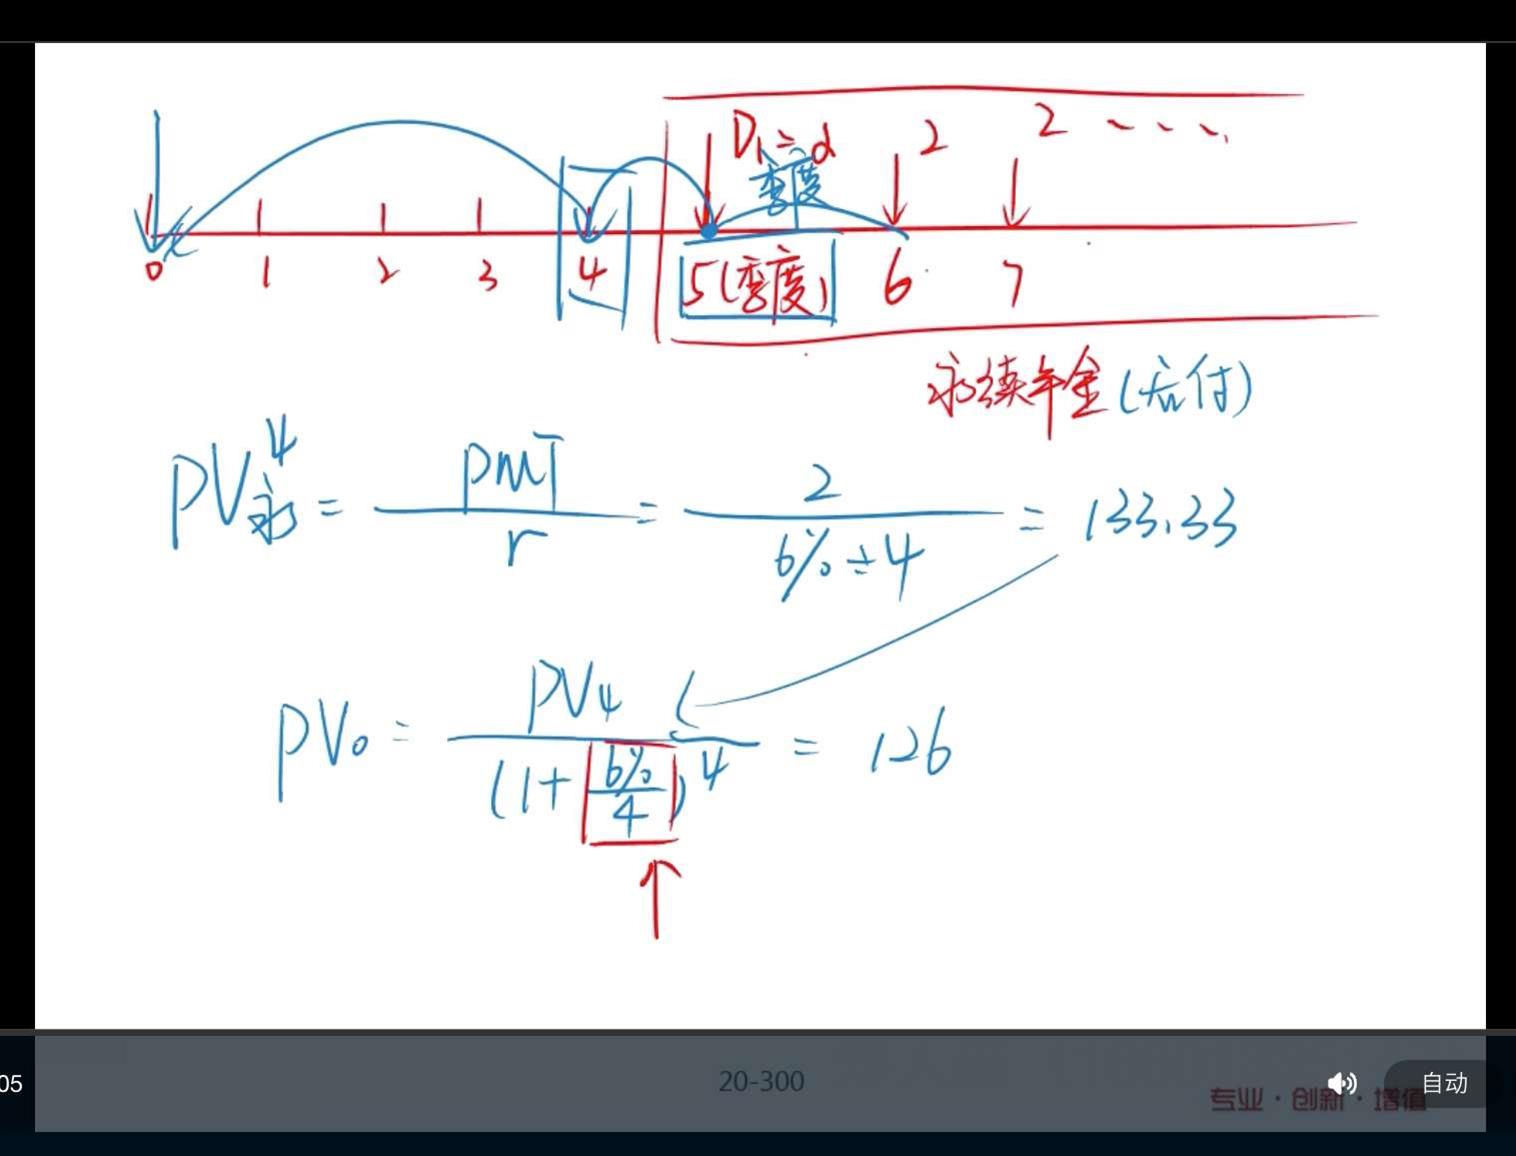 D₁=2 2 2 ....
季度
0 1 2 3 4 5(季度) 6 7
永续年金(后付)
PV永⁴ = PMT/r = 2/(6%÷4) = 133.33
PV₀ = PV₄/(1+6%/4)⁴ = 126
05
20-300
专业·创新·增值
自动